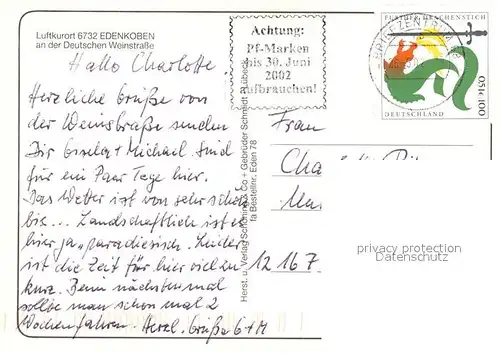 Luftkurort 6732 EDENKOBEN
an der Deutschen Weinstraße
Hallo Charlotte,
Herzliche Grüße von
der Weinstraße senden
Dir Gisela + Michael. Sind
für ein Paar Tage hier.
Das Wetter ist von sehr schön
bis ... Landschaftlich ist es
hier ja "paradiesisch. Leider
ist die Zeit für hier viel zu
kurz. Beim nächsten mal
sollte man schon mal 2
Wochen fahren. Herzl. Grüße G+M
Achtung:
Pf-Marken
bis 30. Juni
2002
aufbrauchen!
FURTHER DRACHENSTICH
BRIEFZENTRUM
0,51€ 100
DEUTSCHLAND
Herst. u. Verlag Schöning & Co + Gebrüder Schmidt
Bestellnr. Eden 78
Frau
Cha
12167
privacy protection
Datenschutz